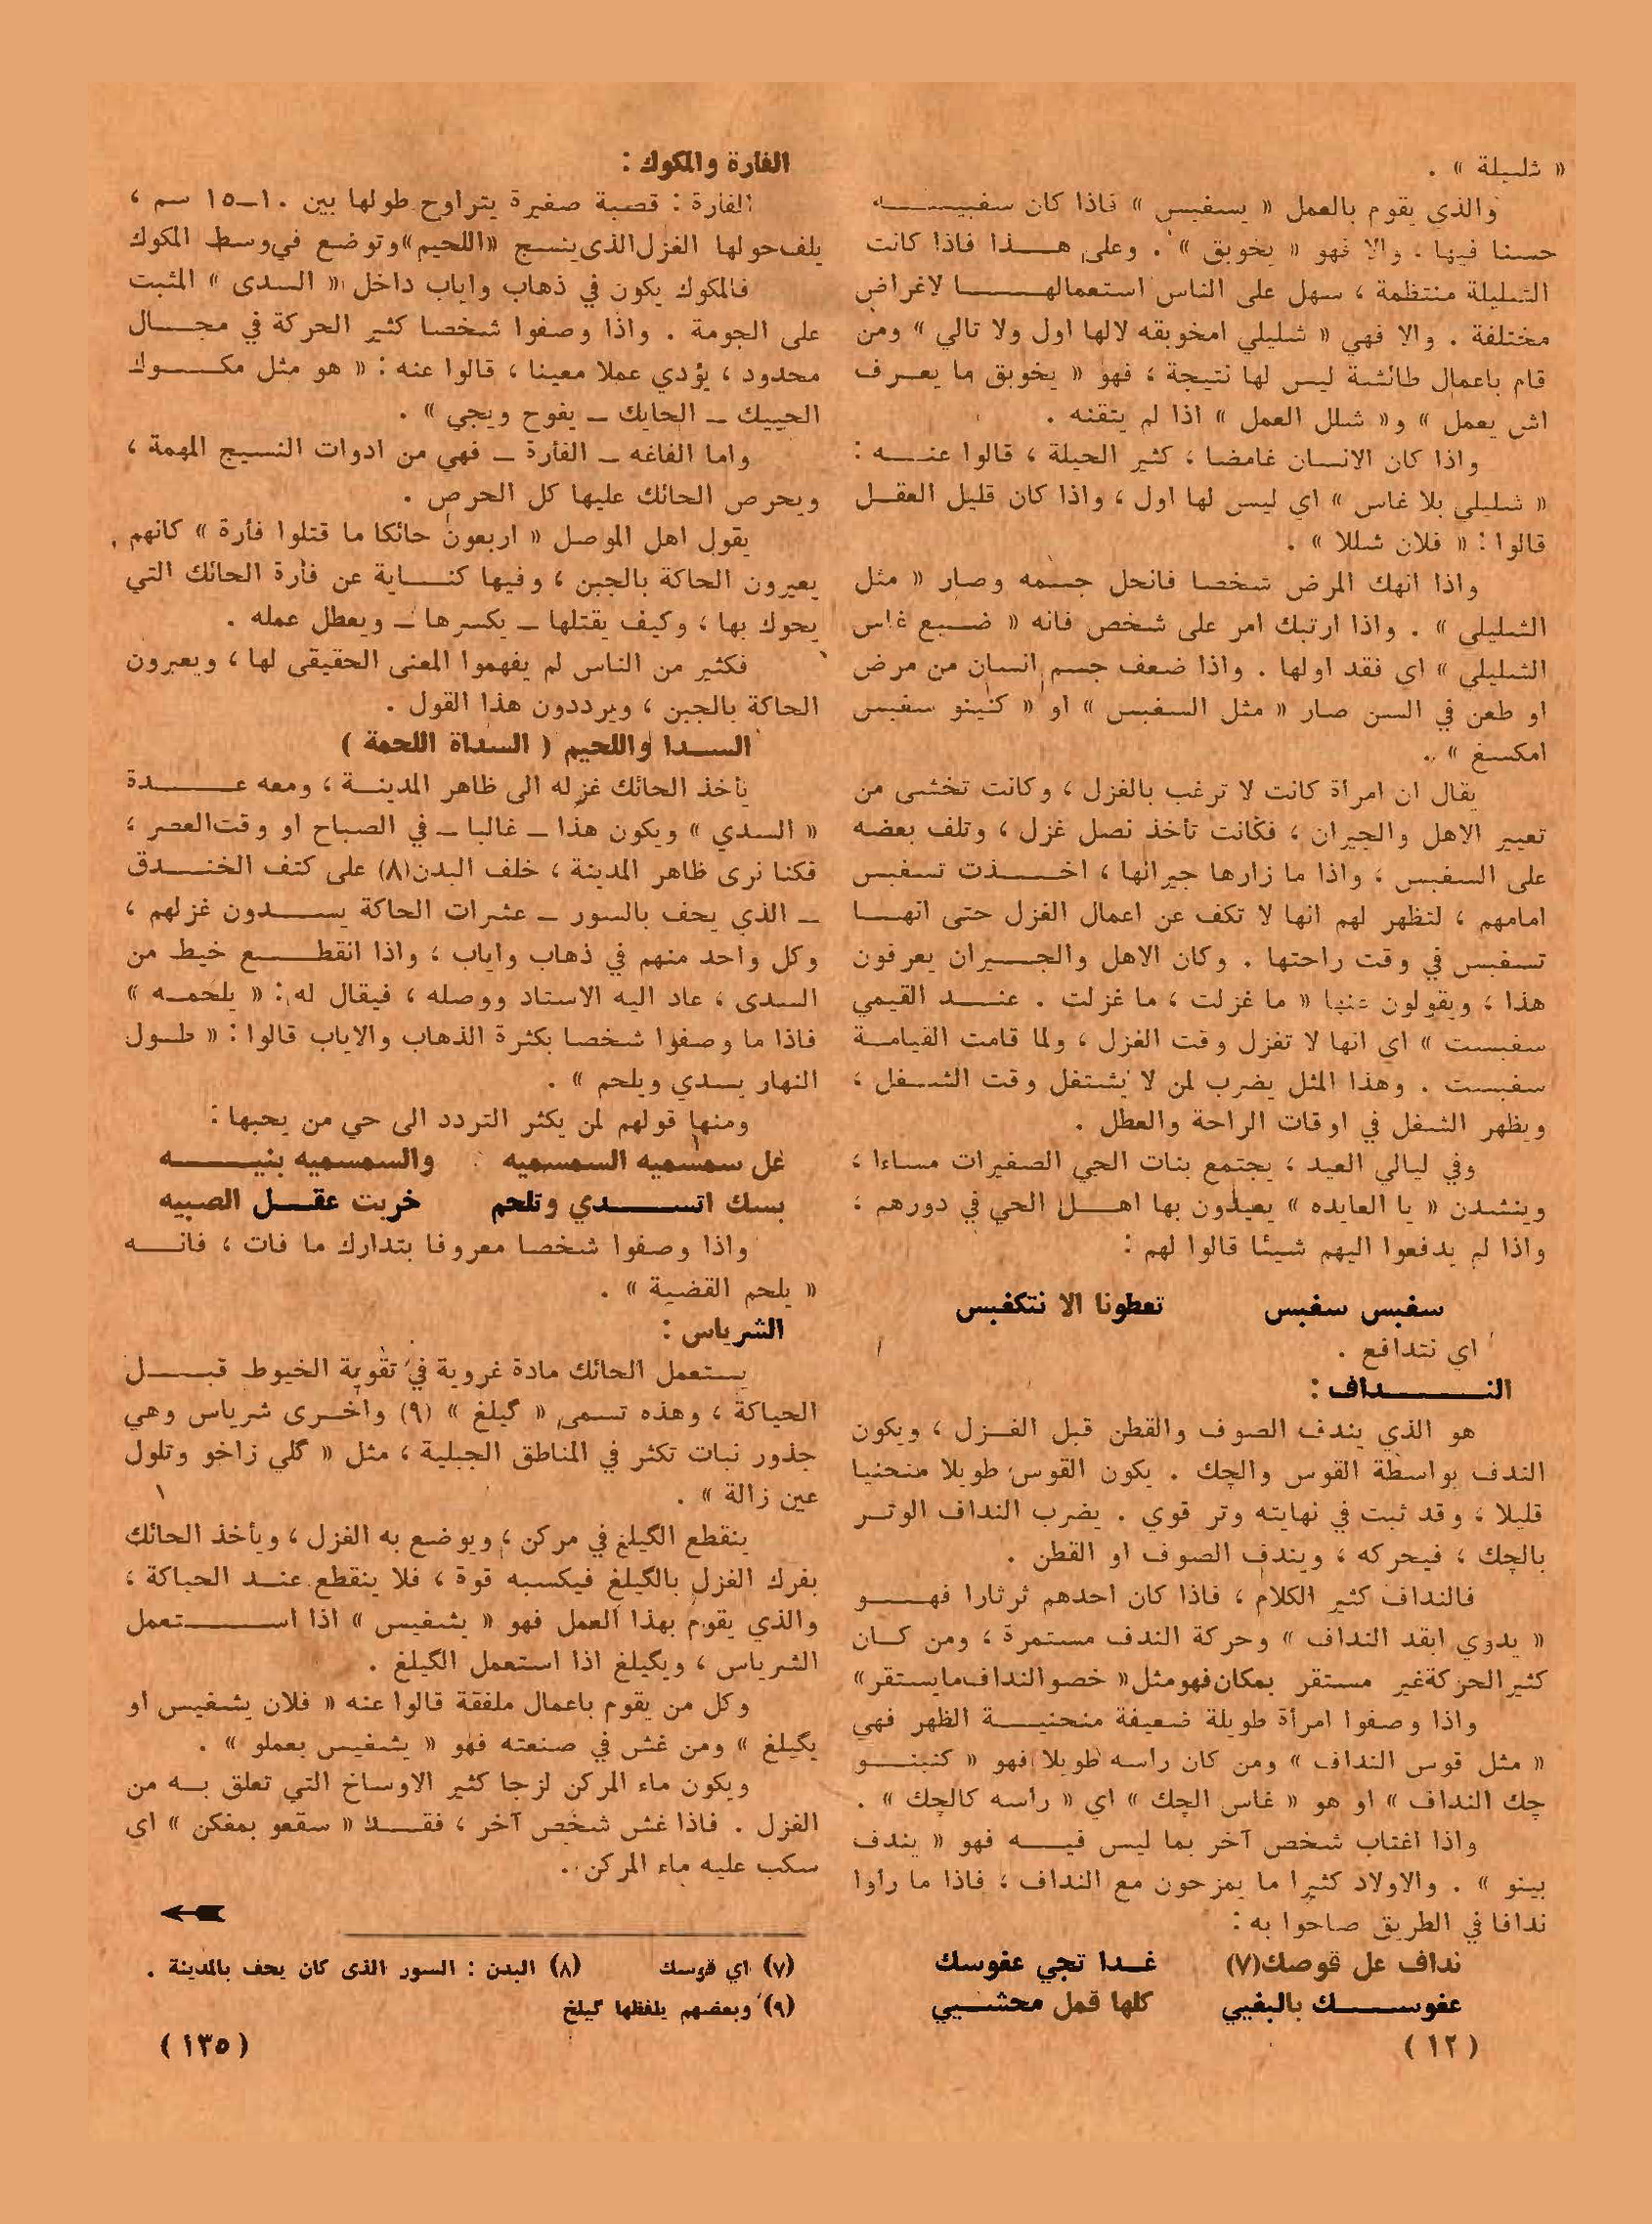 « شليلة » .
والذي يقوم بالعمل « يسفبس » فاذا كان سفبيسـه
حسنا فيها . والا فهو « يخوبق » . وعلى هـذا فاذا كانت
الشليلة منتظمة ، سهل على الناس استعمالهـا لاغراض
مختلفة . والا فهي « شليلي امخوبقه لالها اول ولا تالي » ومن
قام باعمال طائشة ليس لها نتيجة ، فهو « يخوبق ما يعـرف
اش يعمل » و« شلل العمل » اذا لم يتقنه .
واذا كان الانسان غامضا ، كثير الحيلة ، قالوا عنـه :
« شليلي بلا غاس » اي ليس لها اول ، واذا كان قليل العقـل
قالوا : « فلان شللا » .
واذا انهك المرض شخصا فانحل جسمه وصار « مثل
الشليلي » . واذا ارتبك امر على شخص فانه « ضـيع غاس
الشليلي » اى فقد اولها . واذا ضعف جسم انسان من مرض
او طعن في السن صار « مثل السفبس » او « كنينو سفبس
امكسغ » .
يقال ان امرأة كانت لا ترغب بالغزل ، وكانت تخشى من
تعيير الاهل والجيران ، فكانت تأخذ نصل غزل ، وتلف بعضه
على السفبس ، واذا ما زارها جيرانها ، اخـذت تسفبس
امامهم ، لتظهر لهم انها لا تكف عن اعمال الغزل حتى انهـا
تسفبس في وقت راحتها . وكان الاهل والجـيران يعرفون
هذا ، ويقولون عنها « ما غزلت ، ما غزلت . عنـد القيمي
سفبست » اي انها لا تغزل وقت الغزل ، ولما قامت القيامـة
سفبست . وهذا المثل يضرب لمن لا يشتغل وقت الشـغل ،
ويظهر الشغل في اوقات الراحة والعطل .
وفي ليالي العيد ، يجتمع بنات الحي الصغيرات مساءا ،
وينشدن « يا العايده » يعيدون بها اهـل الحي في دورهم :
واذا لم يدفعوا اليهم شيئا قالوا لهم :
سفبس سفبس تعطونا الا نتكفبس
اي نتدافع .
النـداف :
هو الذي يندف الصوف والقطن قبل الغـزل ، ويكون
الندف بواسطة القوس والچك . يكون القوس طويلا منحنيا
قليلا ، وقد ثبت في نهايته وتر قوي . يضرب النداف الوتـر
بالچك ، فيحركه ، ويندف الصوف او القطن .
فالنداف كثير الكلام ، فاذا كان احدهم ثرثارا فهـو
« يدوي ابقد النداف » وحركة الندف مستمرة ، ومن كـان
كثير الحركة غير مستقر بمكان فهو مثل « خصو النداف ما يستقر »
واذا وصفوا امرأة طويلة ضعيفة منحنيـة الظهر فهي
« مثل قوس النداف » ومن كان راسه طويلا فهو « كنينـو
چك النداف » او هو « غاس الچك » اي « رأسه كالچك » .
واذا اغتاب شخص آخر بما ليس فيـه فهو « يندف
بينو » . والاولاد كثيرا ما يمزحون مع النداف ، فاذا ما رأوا
ندافا في الطريق صاحوا به :
نداف عل قوصك(٧) غـدا تجي عفوسك
عفوسـك بالبغيي كلها قمل محشـيي
(١٢)
الفارة والمكوك :
الفارة : قصبة صغيرة يتراوح طولها بين ١٠ــ١٥ سم ،
يلف حولها الغزل الذى ينسج «اللحيم» وتوضع في وسط المكوك
فالمكوك يكون في ذهاب واياب داخل « السدى » المثبت
على الجومة . واذا وصفوا شخصا كثير الحركة في مجـال
محدود ، يؤدي عملا معينا ، قالوا عنه : « هو مثل مكـوك
الحييك ــ الحايك ــ يفوح ويجي » .
واما الفاغه ــ الفأرة ــ فهي من ادوات النسيج المهمة ،
ويحرص الحائك عليها كل الحرص .
يقول اهل الموصل « اربعون حائكا ما قتلوا فأرة » كانهم
يعيرون الحاكة بالجبن ، وفيها كنـاية عن فأرة الحائك التي
يحوك بها ، وكيف يقتلها ــ يكسرها ــ ويعطل عمله .
فكثير من الناس لم يفهموا المعنى الحقيقى لها ، ويعيرون
الحاكة بالجبن ، ويرددون هذا القول .
السـدا واللحيم ( السداة اللحمة )
يأخذ الحائك غزله الى ظاهر المدينـة ، ومعه عـدة
« السدي » ويكون هذا ــ غالبا ــ في الصباح او وقت العصر ،
فكنا نرى ظاهر المدينة ، خلف البدن(٨) على كتف الخنـدق
ــ الذي يحف بالسور ــ عشرات الحاكة يسـدون غزلهم ،
وكل واحد منهم في ذهاب واياب ، واذا انقطـع خيط من
السدى ، عاد اليه الاستاد ووصله ، فيقال له : « يلحمـه »
فاذا ما وصفوا شخصا بكثرة الذهاب والاياب قالوا : « طـول
النهار يسدي ويلحم » .
ومنها قولهم لمن يكثر التردد الى حي من يحبها :
عل سمسميه السمسميه والسمسميه بنيـه
بسك اتسـدي وتلحم خربت عقـل الصبيه
واذا وصفوا شخصا معروفا بتدارك ما فات ، فانـه
« يلحم القضية » .
الشرياس :
يستعمل الحائك مادة غروية في تقوية الخيوط قبـل
الحياكة ، وهذه تسمى « گيلغ » (٩) واخـرى شرياس وهي
جذور نبات تكثر في المناطق الجبلية ، مثل « گلي زاخو وتلول
عين زالة » .
ينقطع الگيلغ في مركن ، ويوضع به الغزل ، ويأخذ الحائك
بفرك الغزل بالگيلغ فيكسبه قوة ، فلا ينقطع عنـد الحياكة ،
والذي يقوم بهذا العمل فهو « يشغيس » اذا اسـتعمل
الشرياس ، ويگيلغ اذا استعمل الگيلغ .
وكل من يقوم باعمال ملفقة قالوا عنه « فلان يشغيس او
يگيلغ » ومن غش في صنعته فهو « يشغيس بعملو » .
ويكون ماء المركن لزجا كثير الاوساخ التي تعلق بـه من
الغزل . فاذا غش شخص آخر ، فقـد « سقعو بمغكن » اي
سكب عليه ماء المركن .
(٧) اي قوسك (٨) البدن : السور الذى كان يحف بالمدينة .
(٩) وبعضهم يلفظها گيلغ
(١٣٥)